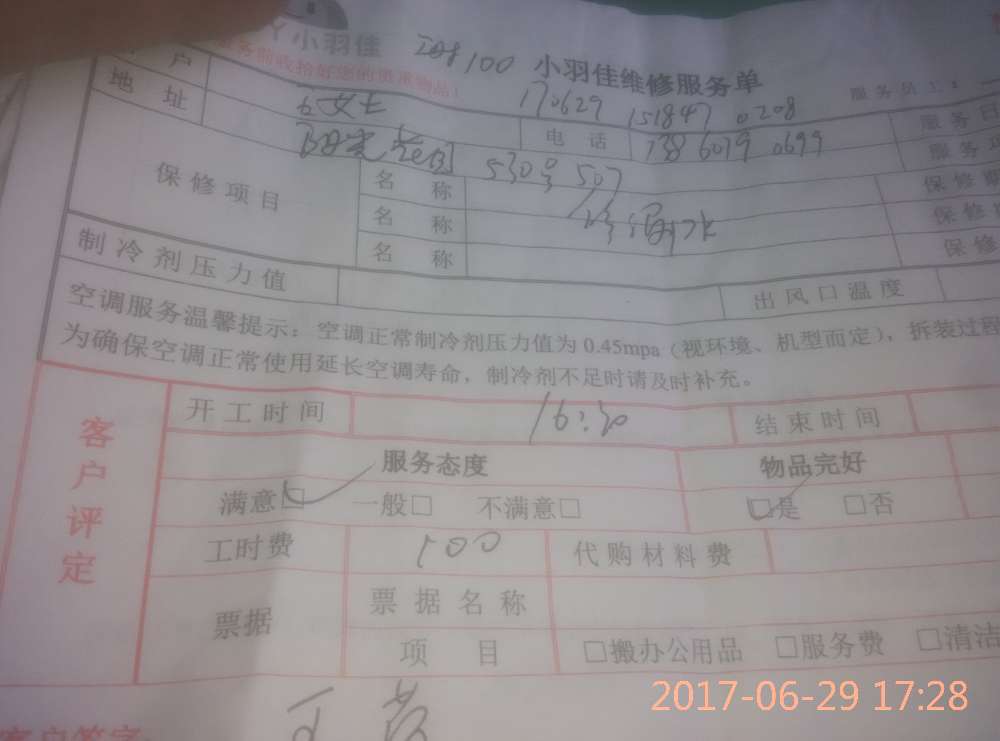 小羽佳
100 小羽佳维修服务单
服务前收拾好您的贵重物品!
服务员工:
户 女士 170629 151847 0208
电 话 138 6079 0699 服务日
地 址 530号 507 服务项
保修项目
名 称 保修期
名 称 水 保修
名 称 保修
制冷剂压力值 出风口温度
空调服务温馨提示:空调正常制冷剂压力值为 0.45mpa(视环境、机型而定),拆装过程
为确保空调正常使用延长空调寿命,制冷剂不足时请及时补充。
客户评定
开工时间 16:30 结束时间
服务态度 物品完好
满意□ 一般□ 不满意□ □是 □否
工时费 100 代购材料费
票据 票据名称
项 目 □搬办公用品 □服务费 □清洁
客户签字:
2017-06-29 17:28